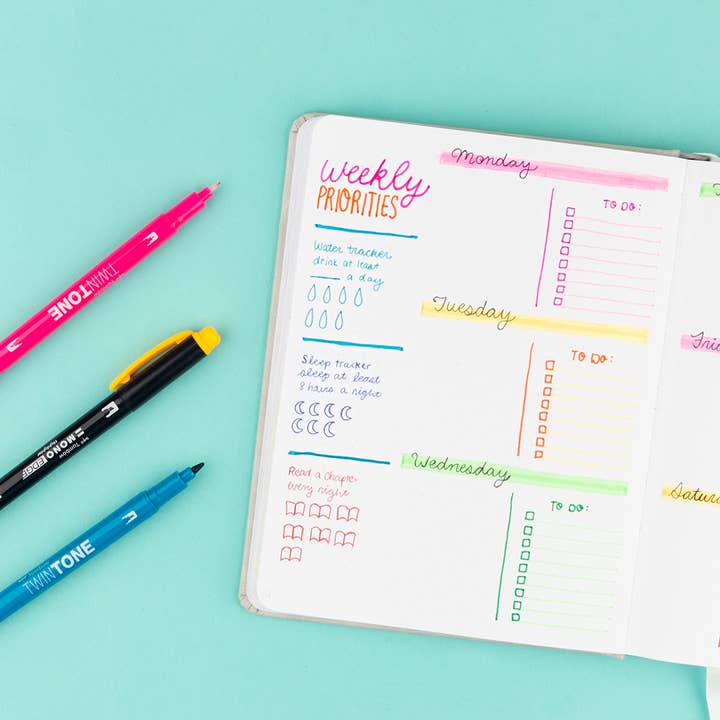 Weekly
PRIORITIES
Water tracker
drink at least
____ a day
Sleep tracker
sleep at least
8 hours a night
Read a chapter
every night
Monday
TO DO:
Tuesday
TO DO:
Wednesday
TO DO:
Satur
TWINTONE
Tombow
MONO EDGE
TWINTONE